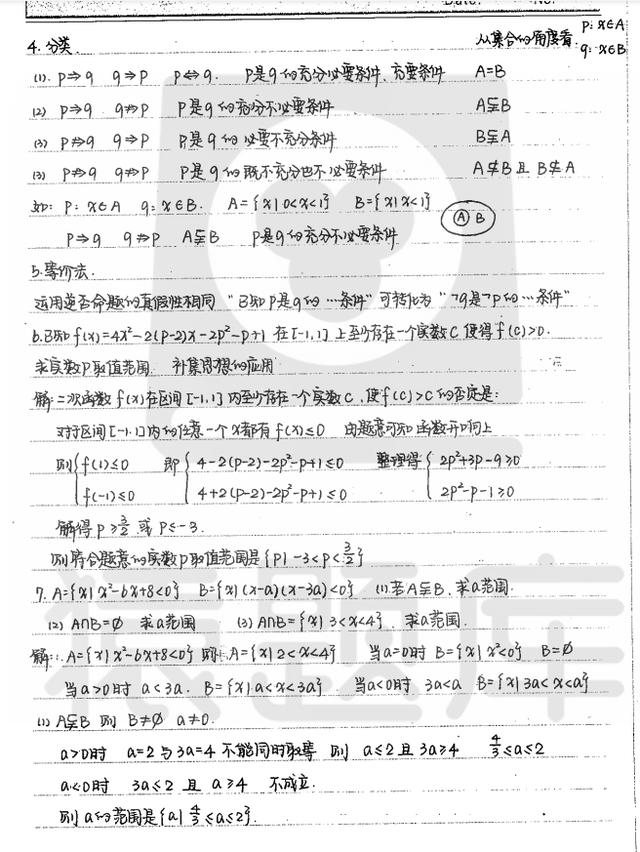 Date: No.
4.分类 从集合的角度看: p: x∈A q: x∈B
(1). p⇒q q⇒p p⇔q. p是q的充分必要条件、充要条件 A=B
(2) p⇒q q⇏p p是q的充分不必要条件 A⫋B
(3) p⇏q q⇒p p是q的必要不充分条件 B⫋A
(3) p⇏q q⇏p p是q的既不充分也不必要条件 A⊄B且B⊄A
如: p: x∈A q: x∈B. A={x|0<x<1} B={x|x<1} A B
p⇒q q⇏p A⫋B p是q的充分不必要条件
5.等价法.
运用是否命题的真假性相同 "已知p是q的…条件" 可转化为 "¬q是¬p的…条件"
6.已知f(x)=4x²-2(p-2)x-2p²-p+1 在[-1,1]上至少存在一个实数C使得f(C)>0.
求实数p取值范围. 补集思想的应用
解:二次函数f(x)在区间[-1,1]内至少存在一个实数C,使f(C)>C的否定是:
对于区间[-1,1]内的任意一个x都有f(x)≤0 由题意可知函数开口向上
则{f(1)≤0 即{4-2(p-2)-2p²-p+1≤0 整理得{2p²+3p-9≥0
f(-1)≤0 4+2(p-2)-2p²-p+1≤0 2p²-p-1≥0
解得p≥3/2或p≤-3.
则符合题意的实数p取值范围是{p|-3<p<3/2}
7. A={x|x²-6x+8<0} B={x|(x-a)(x-3a)<0} (1)若A⫋B,求a范围.
(2) A∩B=∅ 求a范围 (3) A∩B={x|3<x<4}. 求a范围.
解:A={x|x²-6x+8<0} 则A={x|2<x<4} 当a=0时 B={x|x²<0} B=∅
当a>0时 a<3a. B={x|a<x<3a} 当a<0时 3a<a B={x|3a<x<a}
(1) A⫋B 则 B≠∅ a≠0.
a>0时 a=2与3a=4不能同时取等 则 a≤2且3a≥4 4/3≤a≤2
a<0时 3a≤2 且 a≥4 不成立.
则a的范围是{a|4/3≤a≤2}.
猿题库